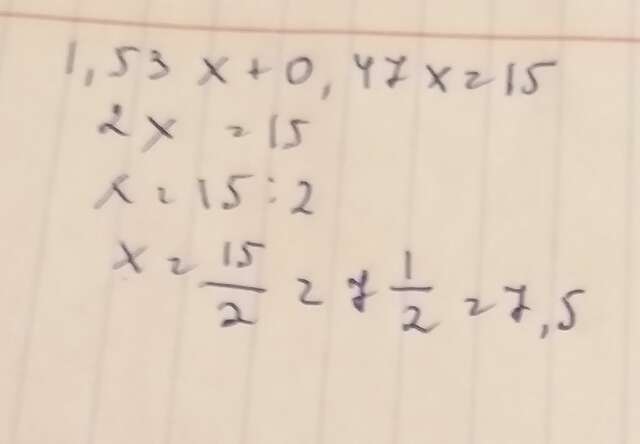 1,53 x + 0,47x = 15
2x = 15
x = 15 : 2
x = 15/2 = 7 1/2 = 7,5